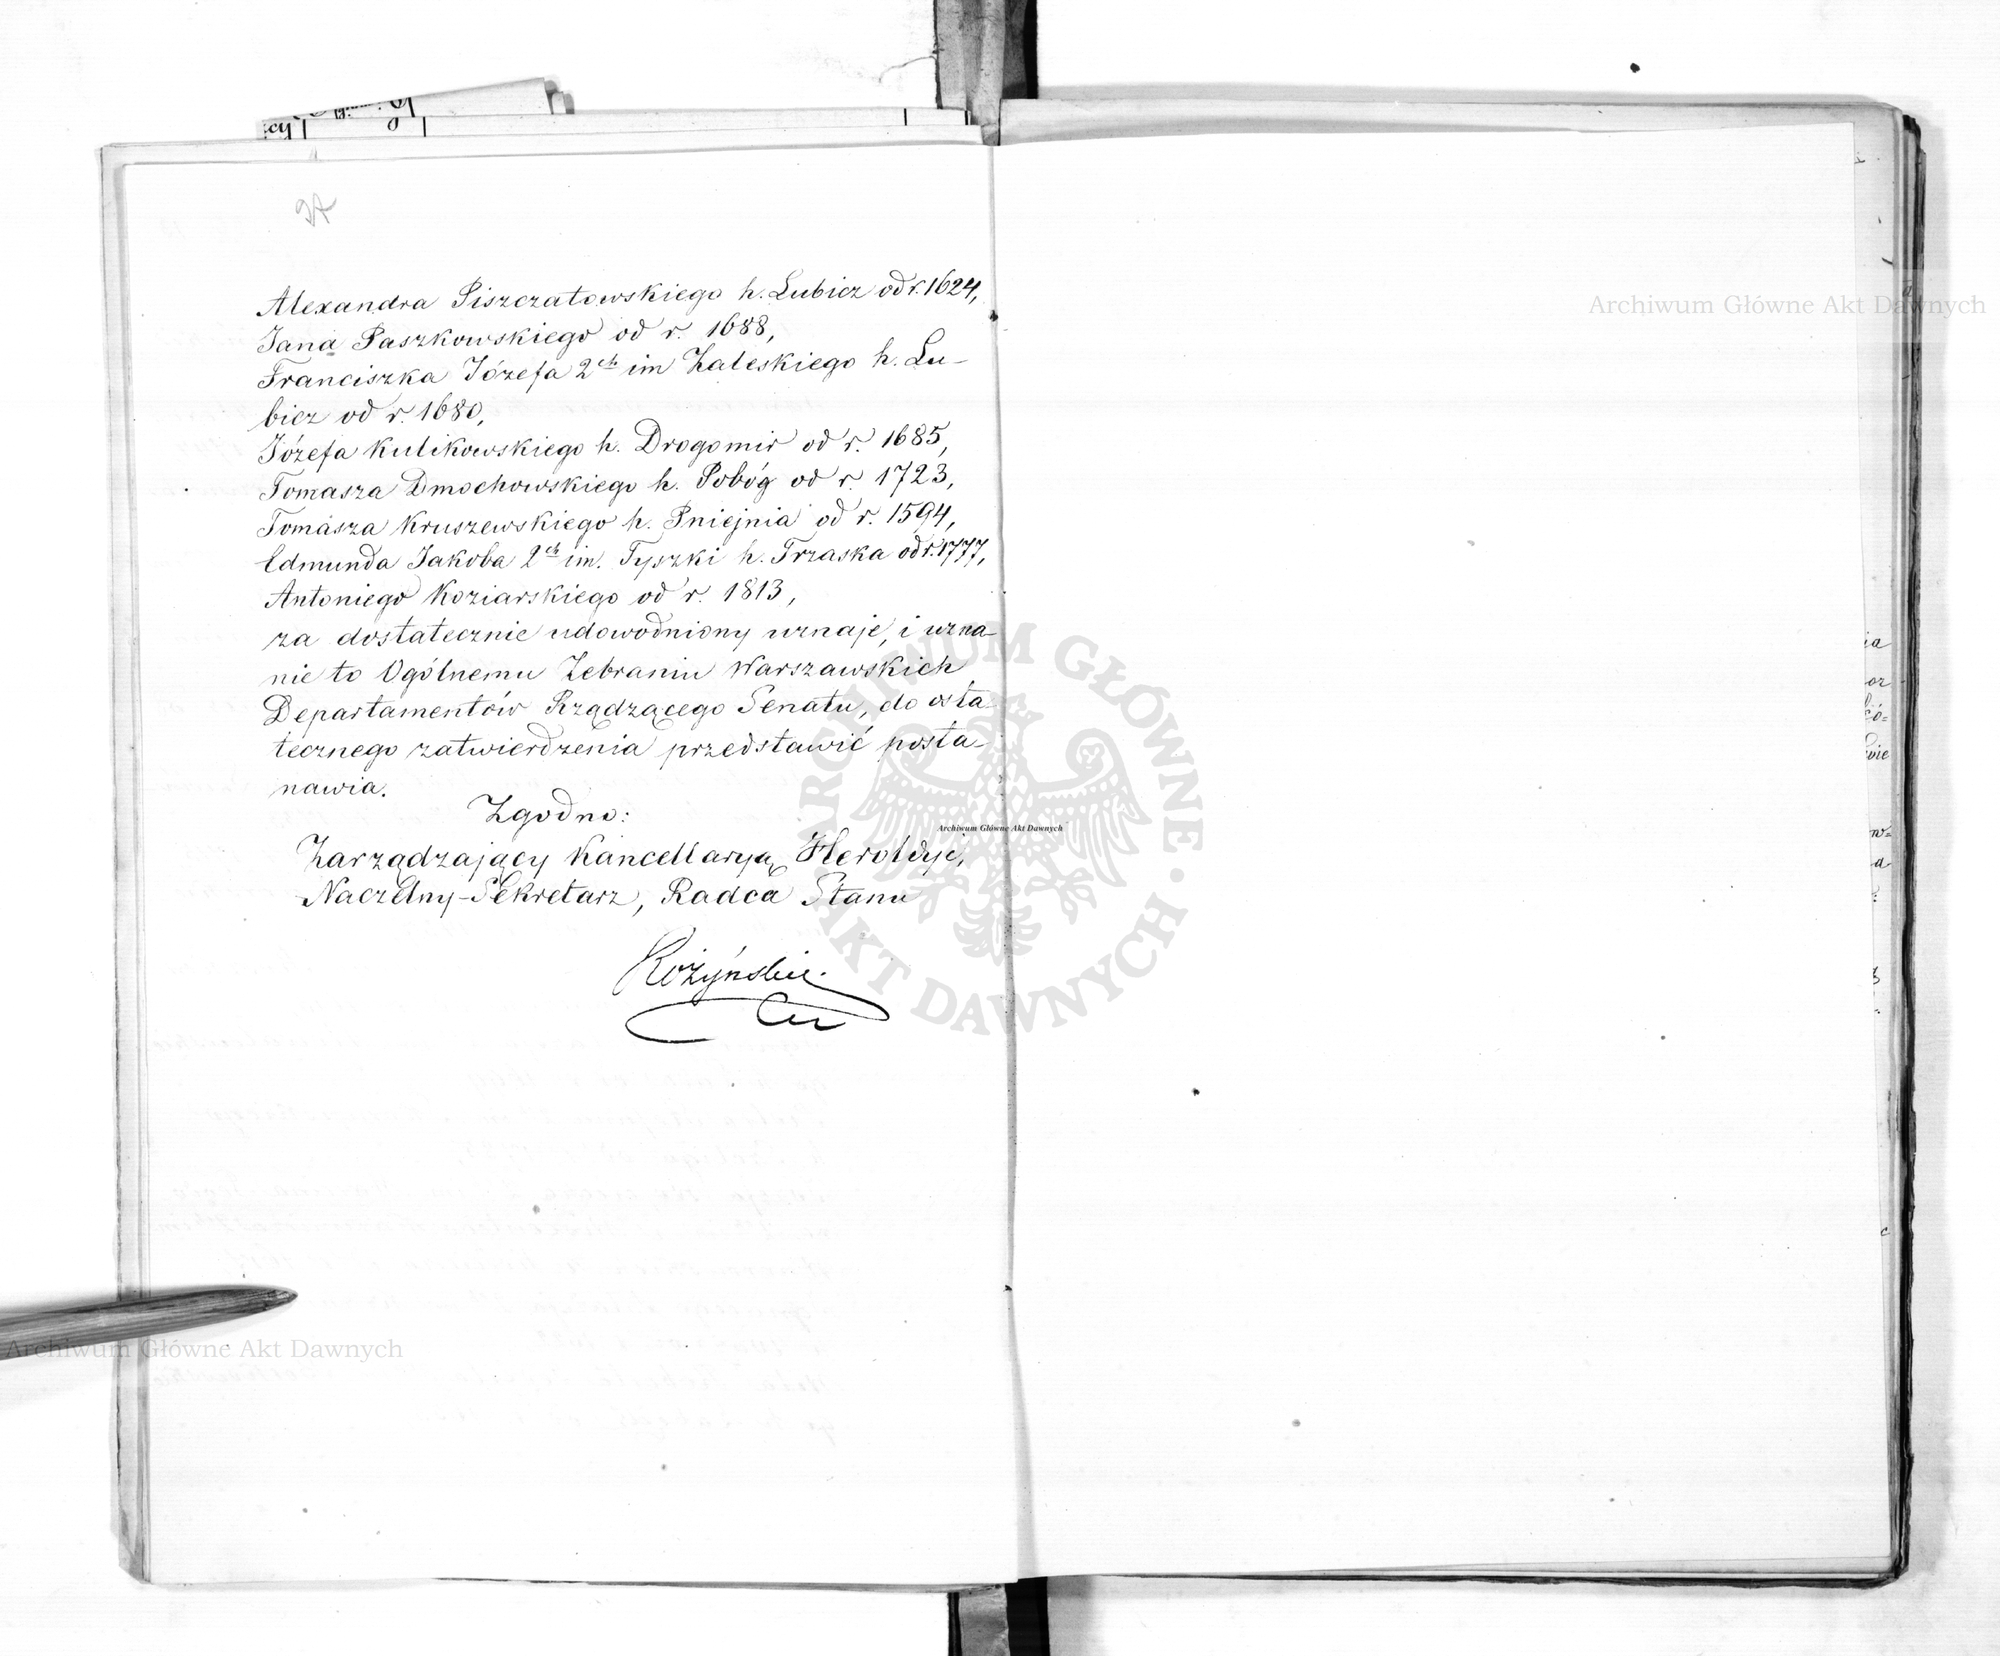 97
Alexandra Piszczatowskiego h. Lubicz od r. 1624,
Jana Paszkowskiego od r. 1688,
Franciszka Józefa 2ch im Zaleskiego h. Lu-
bicz od r. 1680,
Józefa Kulikowskiego h. Drogomir od r. 1685,
Tomasza Dmochowskiego h. Pobóg od r. 1723,
Tomasza Kruszewskiego h. Pniejnia od r. 1594,
Edmunda Jakoba 2ch im. Tyszki h. Trzaska od r. 1777,
Antoniego Koziarskiego od r. 1813,
za dostatecznie udowodniony uznaje, i uzna-
nie to Ogólnemu Zebraniu Warszawskich
Departamentów Rządzącego Senatu, do osta-
tecznego zatwierdzenia przedstawić posta-
nawia.
Zgodno:
Zarządzający Kancellaryą Heroldyi,
Naczelny-Sekretarz, Radca Stanu
Archiwum Główne Akt Dawnych
Archiwum Główne Akt Dawnych
Archiwum Główne Akt Dawnych
ARCHIWUM GŁÓWNE AKT DAWNYCH